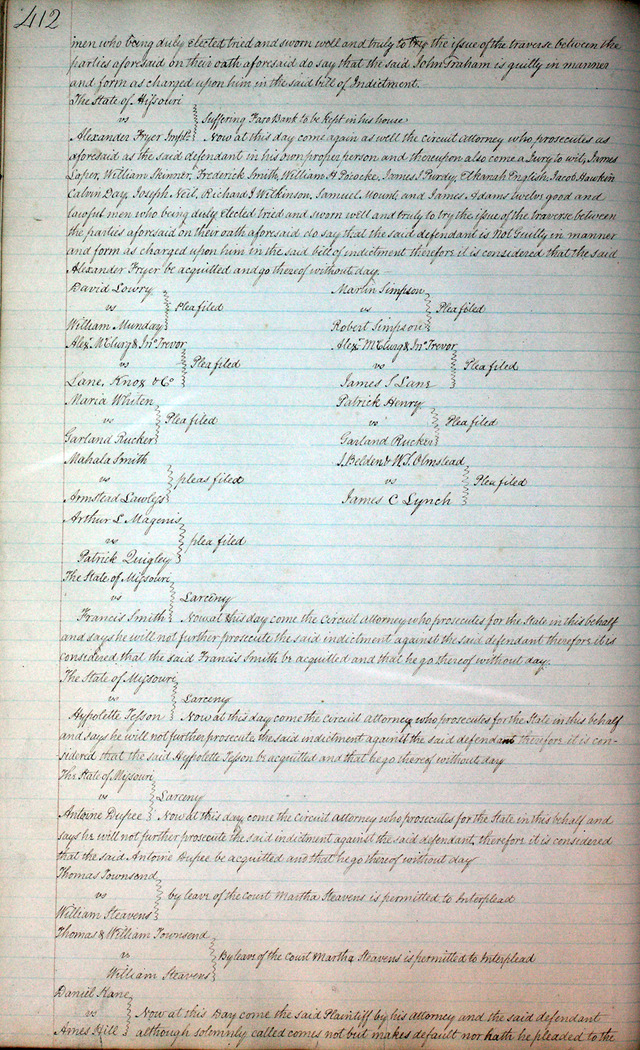 412
men who being duly Elected tried and sworn well and truly to try the issue of the traverse between the
parties aforesaid on their oath aforesaid do say that the said John Graham is guilty in manner
and form as charged upon him in the said bill of Indictment.
The State of Missouri
vs Suffering Faro Bank to be kept in his house
Alexander Fryer Impld. Now at this day come again as well the circuit Attorney who prosecutes as
aforesaid as the said defendant in his own proper person and thereupon also come a Jury to wit, James
William Skinner, Frederick Smith, William H James J. Purdy, Elkanah English, Jacob Hawkin
Calvin Day, Joseph Neil, Richard J Wilkinson, Samuel Mount, and James Adams twelve good and
lawful men who being duly Elected tried and sworn well and truly to try the issue of the traverse between
the parties aforesaid on their oath aforesaid do say that the said defendant is Not Guilty in manner
and form as charged upon him in the said bill of indictment therefore it is considered that the said
Alexander Fryer be acquitted and go thereof without day.
David Lowry
vs Plea filed
William Munday
Martin Simpson
vs Plea filed
Robert Simpson
Alexr. McClurg & Jno. Trevor
vs Plea filed
Lane, Knox & Co
Alexr. McClurg & Jno. Trevor
vs Plea filed
James S Lane
Maria Whiten
vs Plea filed
Garland Rucker
Patrick Henry
vs Plea filed
Garland Rucker
Mahala Smith
vs pleas filed
Armstead Lawless
J. Belden & W. S. Olmstead
vs Plea filed
James C Lynch
Arthur L Magenis
vs plea filed
Patrick Quigley
The State of Missouri
vs Larceny
Francis Smith Now at this day come the Circuit Attorney who prosecutes for the State in this behalf
and says he will not further prosecute the said indictment against the said defendant therefore it is
considered that the said Francis Smith be acquitted and that he go thereof without day.
The State of Missouri
vs Larceny
Hypolette Tesson Now at this day come the circuit attorney who prosecutes for the State in this behalf
and says he will not further prosecute the said indictment against the said defendant therefore it is con-
sidered that the said Hypolette Tesson be acquitted and that he go thereof without day
The State of Missouri
vs Larceny
Antoine Dupee Now at this day come the circuit attorney who prosecutes for the State in this behalf and
says he will not further prosecute the said indictment against the said defendant, therefore it is considered
that the said Antoine Dupee be acquitted and that he go thereof without day
Thomas Townsend
vs by leave of the court Martha Steavens is permitted to Interplead
William Steavens
Thomas & William Townsend
vs By leave of the Court Martha Steavens is permitted to Interplead
William Steavens
Daniel Kane
vs Now at this Day come the said Plaintiff by his attorney and the said defendant
Ames Hill although solemnly called comes not but makes default nor hath he pleaded to the